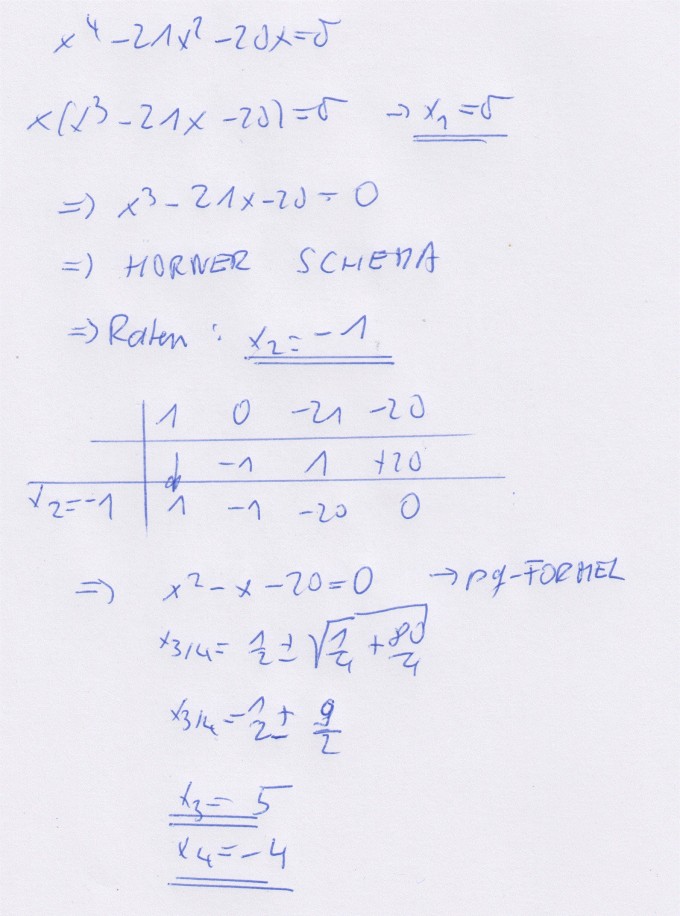 x⁴ - 21x² - 20x = 0
x(x³ - 21x - 20) = 0 → x₁ = 0
⇒ x³ - 21x - 20 = 0
⇒ HORNER SCHEMA
⇒ Raten : x₂ = -1
1 0 -21 -20
↓ -1 1 +20
x₂ = -1 1 -1 -20 0
⇒ x² - x - 20 = 0 → pq-FORMEL
x3/4 = 1/2 ± √(1/4 + 80/4)
x3/4 = 1/2 ± 9/2
x₃ = 5
x₄ = -4